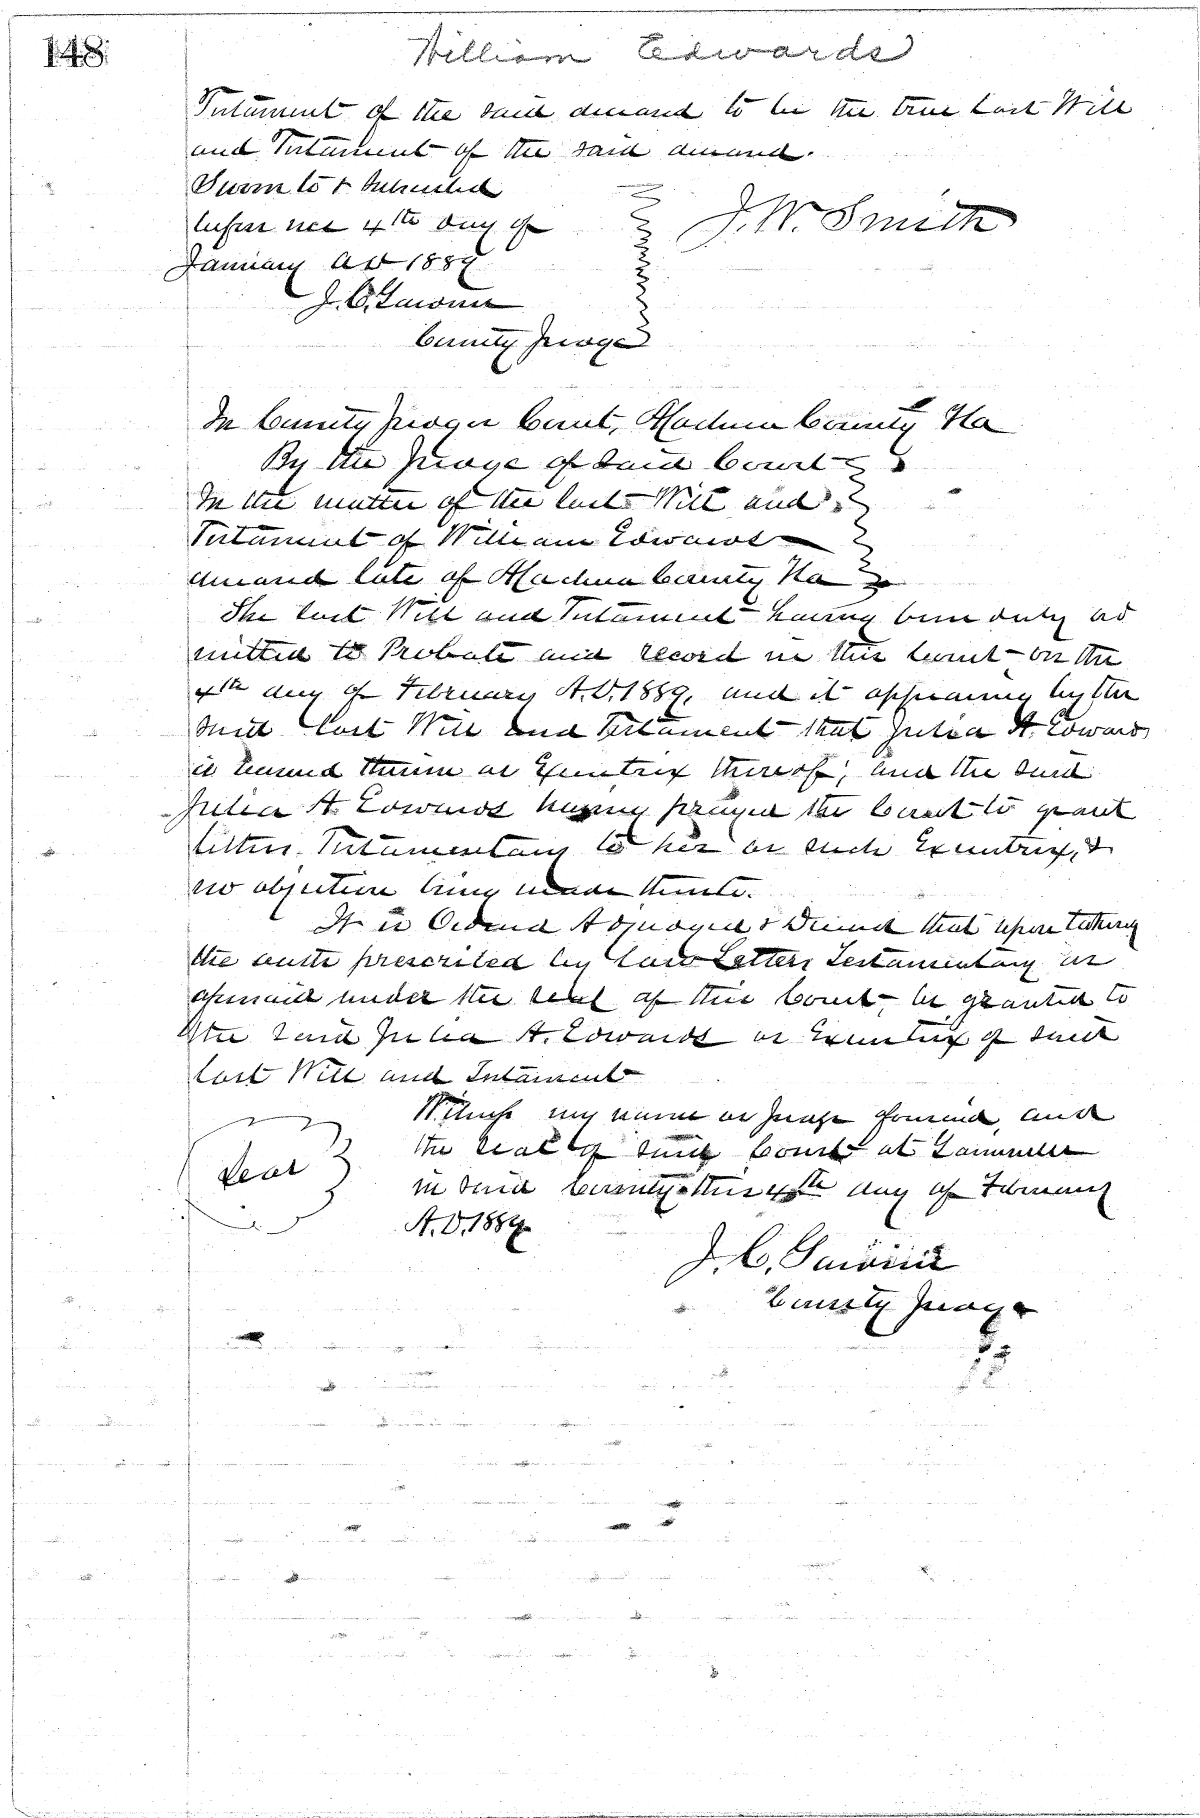 148
William Edwards
Testament of the said deceased to be the true Last Will
and Testament of the said deceased.
Sworn to & Subscribed
before me 4th day of
January AD 1889
J. W. Smith
J. C. Gardner
County Judge
In County Judges Court, Alachua County Fla
By the Judge of said Court
In the matter of the last Will and
Testament of William Edwards
deceased late of Alachua County Fla
The last Will and Testament having been duly ad
mitted to Probate and record in this Court on the
4th day of February A.D. 1889, and it appearing by the
said Last Will and Testament that Julia A. Edwards
is named therein as Executrix thereof, and the said
Julia A. Edwards having prayed the Court to grant
letters Testamentary to her as such Executrix, &
no objection being made thereto.
It is Ordered Adjudged & Decreed that upon taking
the oath prescribed by law Letters Testamentary as
aforesaid under the seal of this Court, be granted to
the said Julia A. Edwards as Executrix of said
Last Will and Testament
Witness my name as Judge aforesaid, and
the seal of said Court at Gainesville
in said County this 4th day of February
A.D. 1889
Seal
J. C. Gardner
County Judge